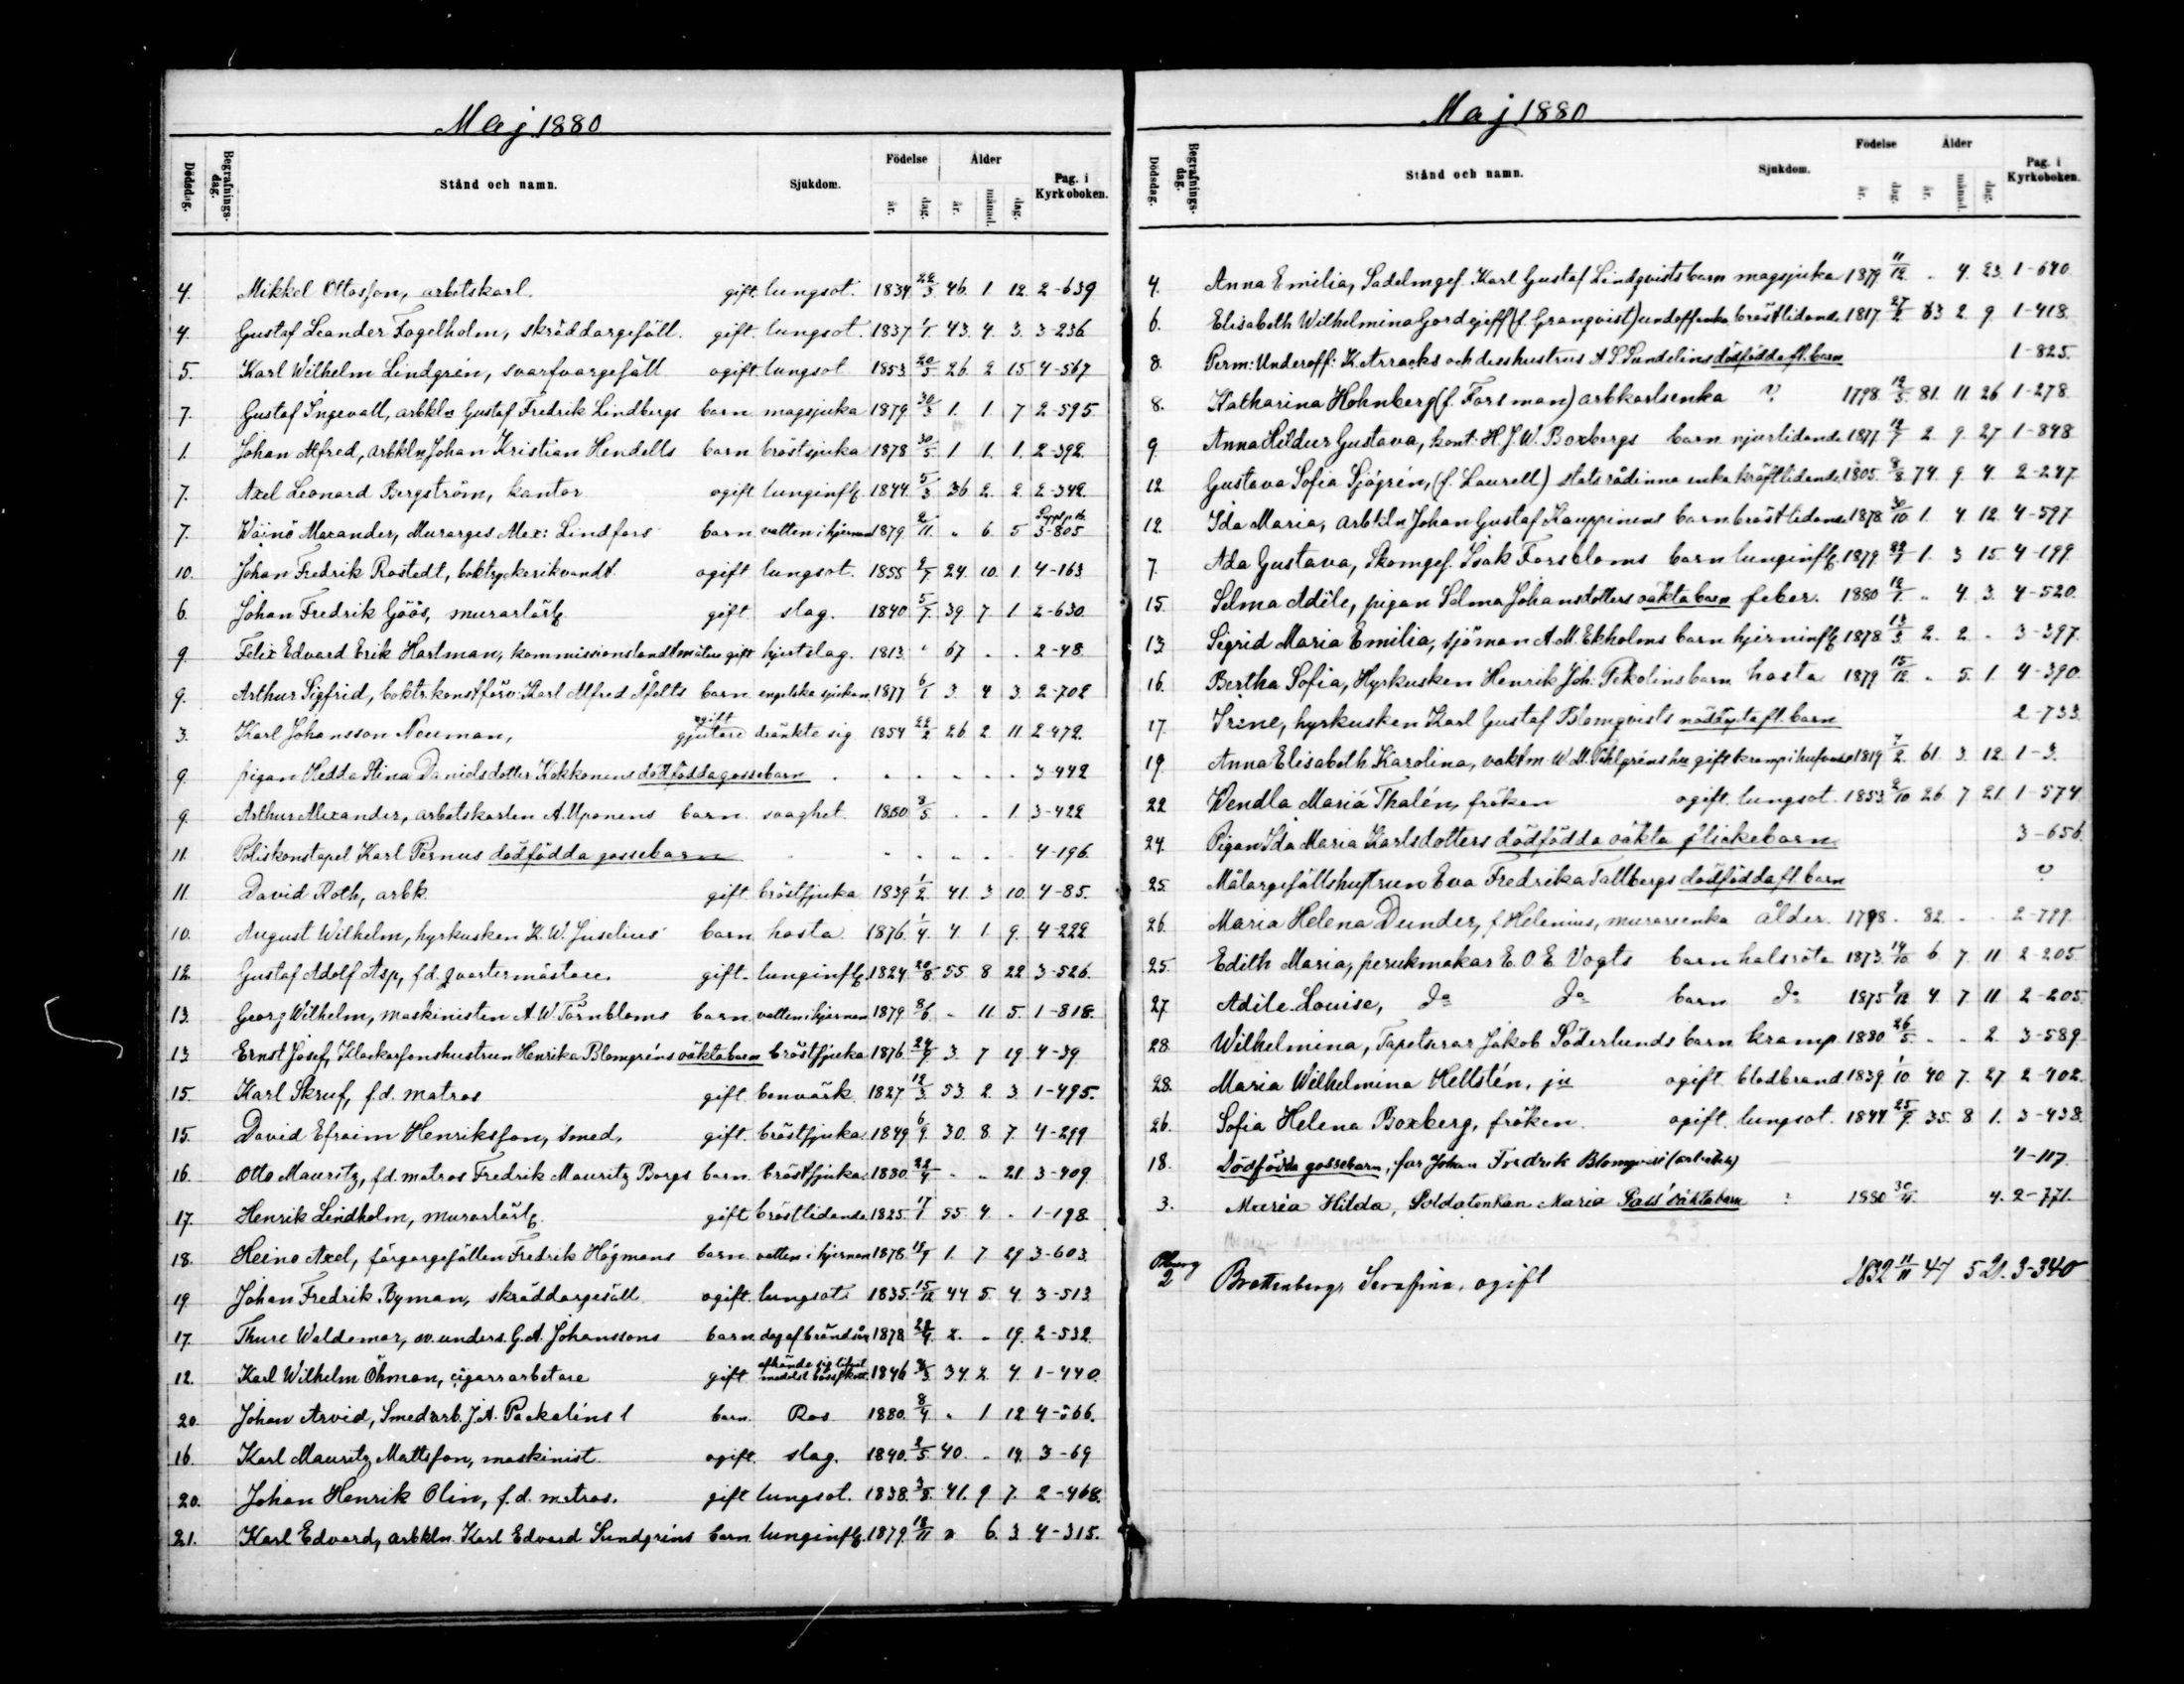 Maj 1880
Dödsdag. Begrafnings-dag. Stånd och namn. Sjukdom. Födelse år. dag. Ålder år. månad. dag. Pag. i Kyrkoboken.
4. Mikkel Ottosson, arbetskarl. gift. lungsot. 1834 22/3 46. 1 12. 2-639
4. Gustaf Leander Fagelholm, skräddargesäll. gift. lungsot. 1837 1/1 43. 4. 3. 3-236
5. Karl Wilhelm Lindgrén, svarfvargesäll ogift lungsot 1853. 20/3 26. 2 15 4-567
7. Gustaf Ingevall, arbkln Gustaf Fredrik Lindbergs barn magsjuka 1879. 30/3 1. 1 7 2-595
1. Johan Alfred, arbkln Johan Kristian Hendells barn bröstsjuka 1878 30/3 1 1. 1. 2-392
7. Axel Leonard Bergström, kantor ogift lunginfl. 1844. 5/3 36 2. 2. 2-342
7. Wäinö Alexander, Murarges. Alex: Lindfors barn vatten i hjernan 1879. 2/11. " 6 5 3-805
10. Johan Fredrik Rostedt, boktryckerikvandt. ogift lungsot. 1855 9/7. 24. 10. 1. 4-163
6. Johan Fredrik Göös, murarlärl. gift slag. 1840. 5/7. 39 7 1 2-630
9. Felix Edvard Erik Hartman, kommissionslandtmätare gift hjertslag. 1813. " 67 . . 2-48
9. Arthur Sigfrid, boktr.konstförv. Karl Alfred Åfelts barn engelska sjukan 1877 6/1 3. 4 3. 2-702
3. Karl Johansson Neuman, ogift gjutare dränkte sig 1854 22/2 26. 2 11 2-472.
9. pigan Hedda Stina Danielsdotter Kokkonens dödfödda gossebarn . . . . . . 3-442
9. Arthur Alexander, arbetskarlen A. Uponens barn svaghet. 1880 8/5. . . 1. 3-422
11. Poliskonstapel Karl Pernus dödfödda gossebarn . . . . . 4-196.
11. David Roth, arbk. gift bröstsjuka 1839 1/2. 41. 3 10. 4-85.
10. August Wilhelm, hyrkusken K. W. Juselius' barn. hosta. 1876. 1/4. 4. 1 9. 4-222
12. Gustaf Adolf Asp, f.d. qvartermästare. gift. lunginfl. 1824. 20/8. 55 8 22 3-526.
13. Georg Wilhelm, maskinisten A. W. Törnbloms barn vatten i hjernan 1879 8/6. - 11 5. 1-818.
13. Ernst Josef, Klockarsonshustrun Henrika Blomgréns oäkta barn bröstsjuka 1876. 24/9. 3. 7 19 4-39
15. Karl Skruf, f.d. matros gift. benvärk. 1827 12/3. 53. 2. 3. 1-495.
15. David Efraim Henriksson, smed. gift. bröstsjuka. 1849. 6/9. 30. 8. 7. 4-299
16. Otto Mauritz, f.d. matros Fredrik Mauritz Borgs barn. bröstsjuka. 1880. 25/4 - .. 21 3-409
17. Henrik Lindholm, murarlärl. gift bröstlidande 1825. 17/1 55 4 . 1-198
18. Heino Axel, färgargesällen Fredrik Högmans barn. vatten i hjernan 1878. 19/9 1. 7 29 3-603.
19. Johan Fredrik Byman, skräddargesäll ogift lungsot. 1835. 15/12 44 5. 4. 3-513.
17. Thure Waldemar, ov. unders. G. A. Johanssons barn. dog af brändsår 1878. 28/4. 2. - 19. 2-532.
12. Karl Wilhelm Öhman, cigarrarbetare gift afhände sig lifvet medelst bösskott. 1846 8/3. 34. 2 4. 1-440.
20. Johan Arvid, Smedarb. J. A. Packaléns l barn. Ros 1880. 8/4 " 1 12 4-566.
16. Karl Mauritz Mattsson, maskinist. ogift. slag. 1840. 2/5. 40. . 14. 3-69
20. Johan Henrik Olin, f.d. matros. gift lungsot. 1838. 3/8. 41. 9 7. 2-468.
21. Karl Edvard, arbkln. Karl Edvard Sundgréns barn lunginfl. 1879. 18/11 " 6. 3 4-315.
Maj 1880
Dödsdag. Begrafnings-dag. Stånd och namn. Sjukdom. Födelse år. dag. Ålder år. månad. dag. Pag. i Kyrkoboken.
4. Anna Emilia, Sadelmgef. Karl Gustaf Lindqvists barn magsjuka 1879. 11/12 . 4. 23. 1-640
6. Elisabeth Wilhelmina Gordejeff (f. Granqvist) undoff.enka bröstlidande 1817. 27/2 63 2 9. 1-418.
8. Perm: Underoff: K. Arracks och dess hustrus A S Sundelins dödfödda fl. barn 1-825.
8. Katharina Hohnberg (f. Forsman) arbkarlsenka ? 1798 12/5. 81. 11 26 1-278
9. Anna Hildur Gustava, kont: H. J. W. Boxbergs barn njurlidande 1877 12/7 2. 9. 27 1-848
12. Gustava Sofia Sjögrén, (f. Laurell) statsrådinna enka kräftlidande 1805. 8/8 74. 9. 4. 2-247.
12. Ida Maria, arbkln Johan Gustaf Kauppinens barn bröstlidande 1878 30/10 1. 4. 12. 4-597
7. Ada Gustava, Skomgef. Isak Forsbloms barn lunginfl. 1879. 22/1 1. 3 15. 4-199.
15. Selma Adéle, pigan Selma Johansdotters oäkta barn feber. 1880 12/1. " 4. 3. 4-520.
13 Sigrid Maria Emilia, sjöman A. M. Ekholms barn hjerninfl. 1878. 13/3 2. 2. - 3-397.
16. Bertha Sofia, Hyrkusken Henrik Joh. Pekolins barn hosta 1879 15/12. " 5. 1. 4-390.
17. Irine, hyrkusken Karl Gustaf Blomqvists nöddöpta fl. barn 2-733.
19. Anna Elisabeth Karolina, vaktm. W. M. Öhlgréns hu gift kramp i hufvudet 1819 7/2. 61. 3. 12. 1-3.
22 Wendla Maria Thalén, fröken ogift. lungsot. 1853. 2/10 26. 7 21. 1-574
24. Pigan Ida Maria Karlsdotters dödfödda oäkta flickebarn. 3-656.
25. Målargesällshustrun Eva Fredrika Tallbergs dödfödda fl. barn ?
26. Maria Helena Dunder, f. Helenius, murareenka ålder. 1798 . 82. - - 2-799.
25. Edith Maria, perukmakar E. O. E. Vogts barn halsröta 1873. 14/10 6. 7. 11 2-205.
27. Adile Louise, Do Do barn Do 1875 9/12 4. 7 11 2-205.
28. Wilhelmina, Tapetserar Jakob Söderlunds barn kramp. 1880 26/5. " " 2. 3-589.
28. Maria Wilhelmina Hellstén, ogift. blodbrand. 1839. 1/10 40. 7. 27 2-402.
26. Sofia Helena Boxberg, fröken. ogift. lungsot. 1844. 25/9. 35. 8 1. 3-438.
18. Dödfödda gossebarn, far Johan Fredrik Blomqvist 4-117
3. Maria Hilda, Soldatenkan Maria oäkta barn ? 1880 30/4. 4. 2-771.
23
2 Brottenberg, Serafina, ogift 1832 11/11 47 5 21. 3-340